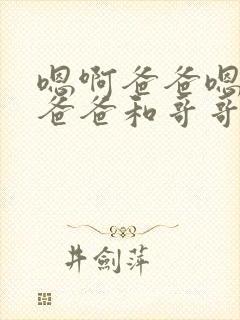 嗯啊爸爸嗯
爸爸和哥哥
井劍萍